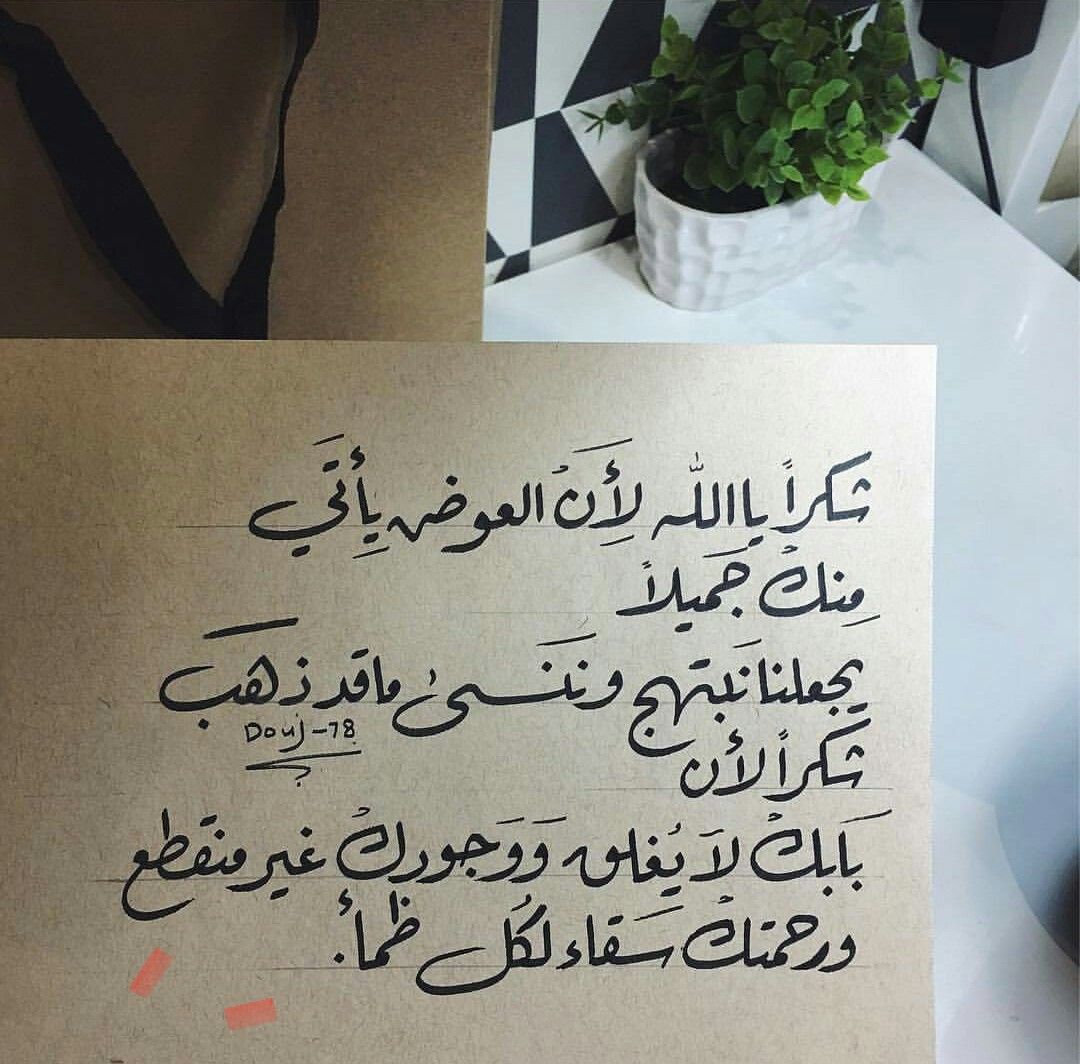 شكراً يا الله لِأَنَ العوض يِأَتَي
مِنك جَميلاً
يجعلنا نَبتهج ونَنَسى ما قد ذهَبَ
Douj-78
شَكراً لأن
بَابك لاَ يُغلق وَوَجودك غير منقَطع
ورحمتك سَقاء لكُل ظمأ.